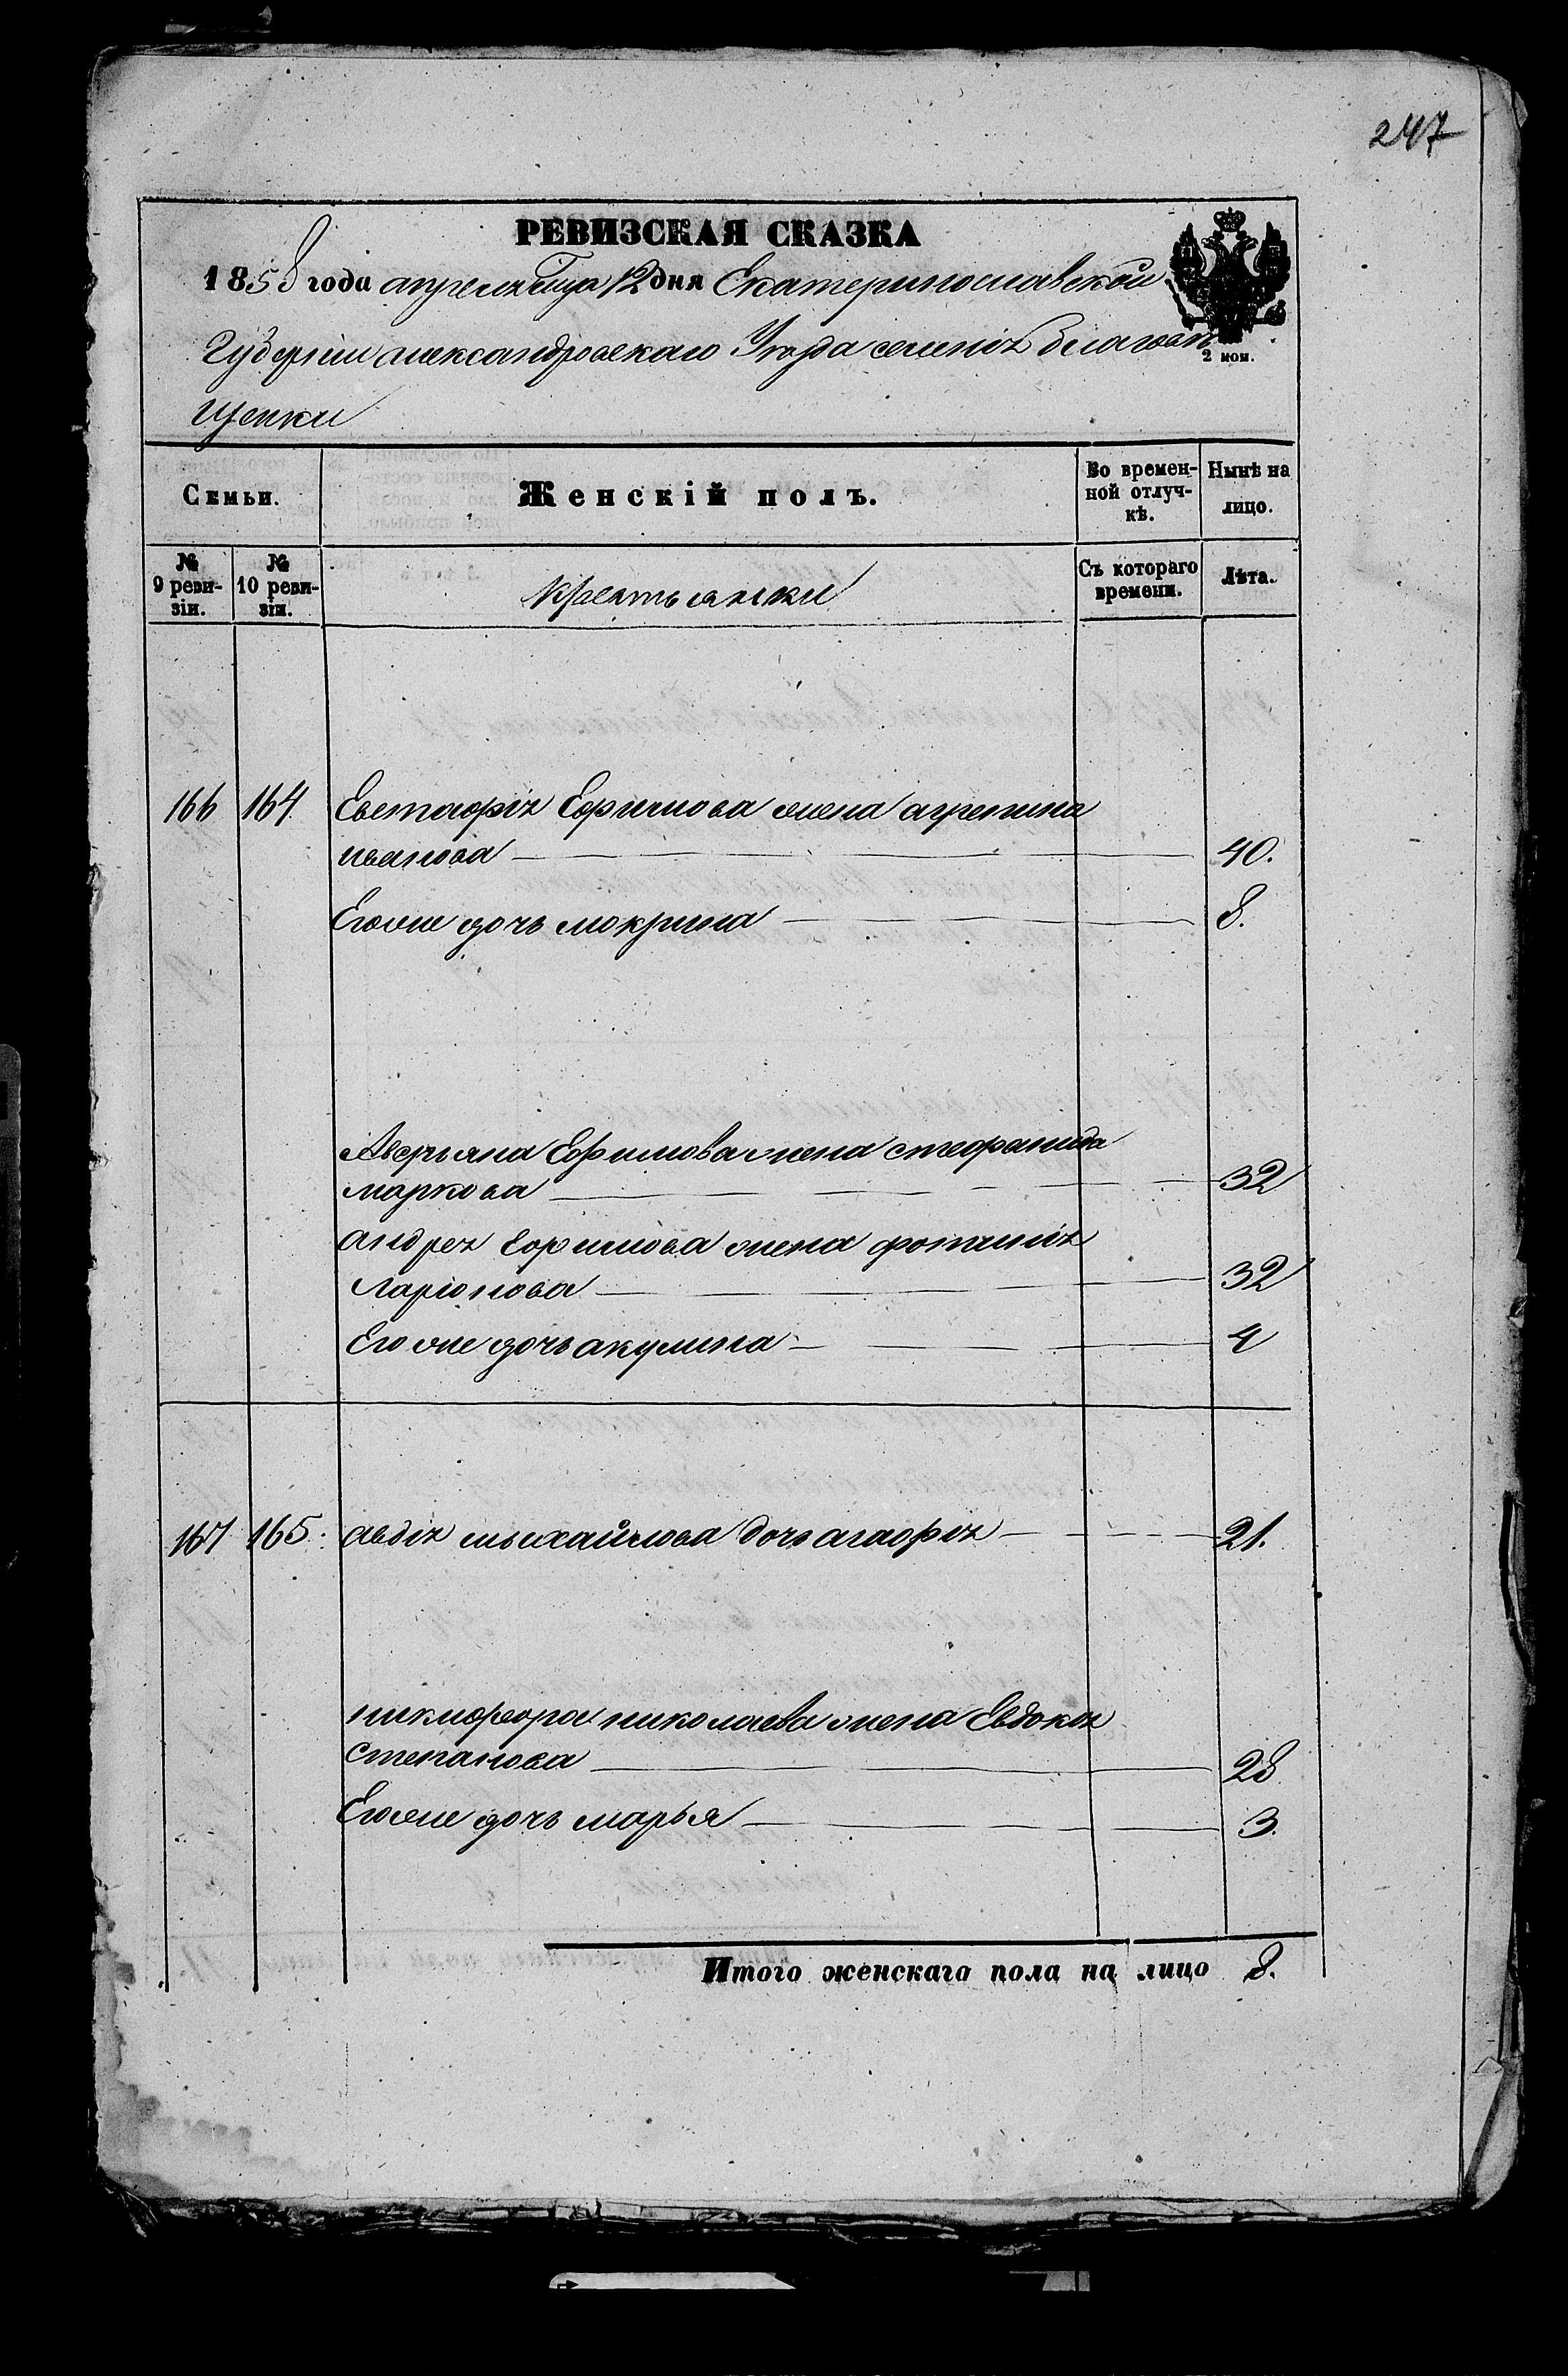 247
РЕВИЗСКАЯ СКАЗКА
1858 года апреля м-ца 12 дня Екатеринославской
Губерніи александровскаго Уезда селенія благовѣ
щенки
2 коп.
Семьи.
Женскій полъ.
Во времен-
ной отлуч-
кѣ.
Нынѣ на
лицо.
№
9 реви-
зіи.
№
10 реви-
зіи.
Крестьянки
Съ котораго
времени.
Лѣта.
166 164. Евстафія Ефимова жена агрепина
иванова 40.
Егоже дочь мокрина 8.
Аверьяна Ефимова жена стефанида
маркова 32
андрея ефимова жена фотинія
Ларіонова 32
Его же дочь акулина 4
167 165. авдія михайлова дочь агафія 21.
никифора николаева жена Евдокія
степанова 28
Егоже дочь марья 3.
Итого женскаго пола на лицо 8.